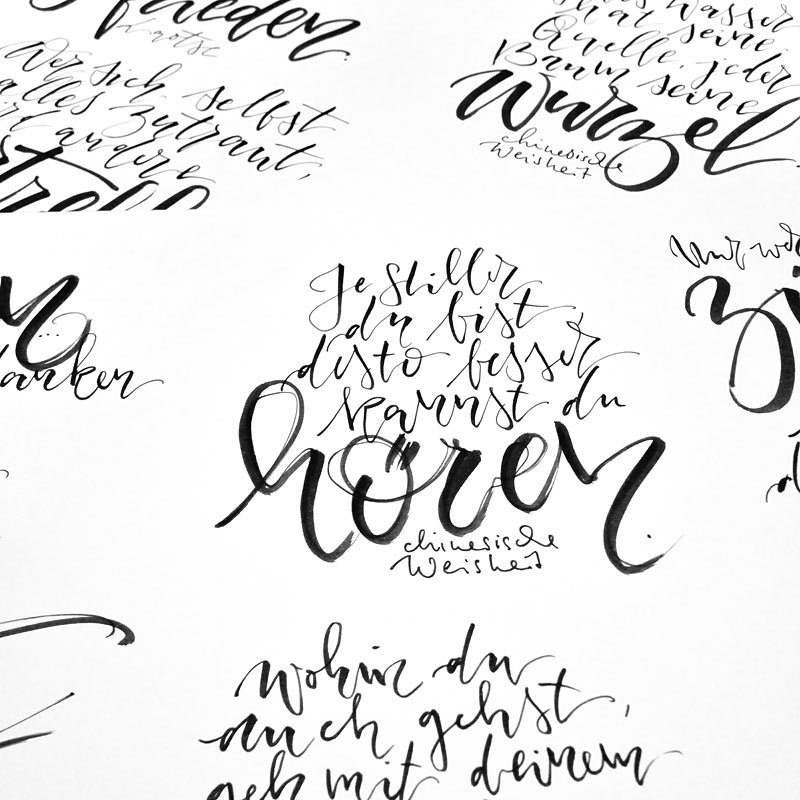 Frieden.
Laotse
Wer sich selbst
alles zutraut,
andere
Wasser
hat seine
Quelle, jeder
Baum seine
Wurzel.
chinesische
Weisheit
Nur
anken
Je stiller
du bist,
desto besser
kannst du
hören.
chinesische
Weisheit
wohin du
auch gehst,
geh mit deinem